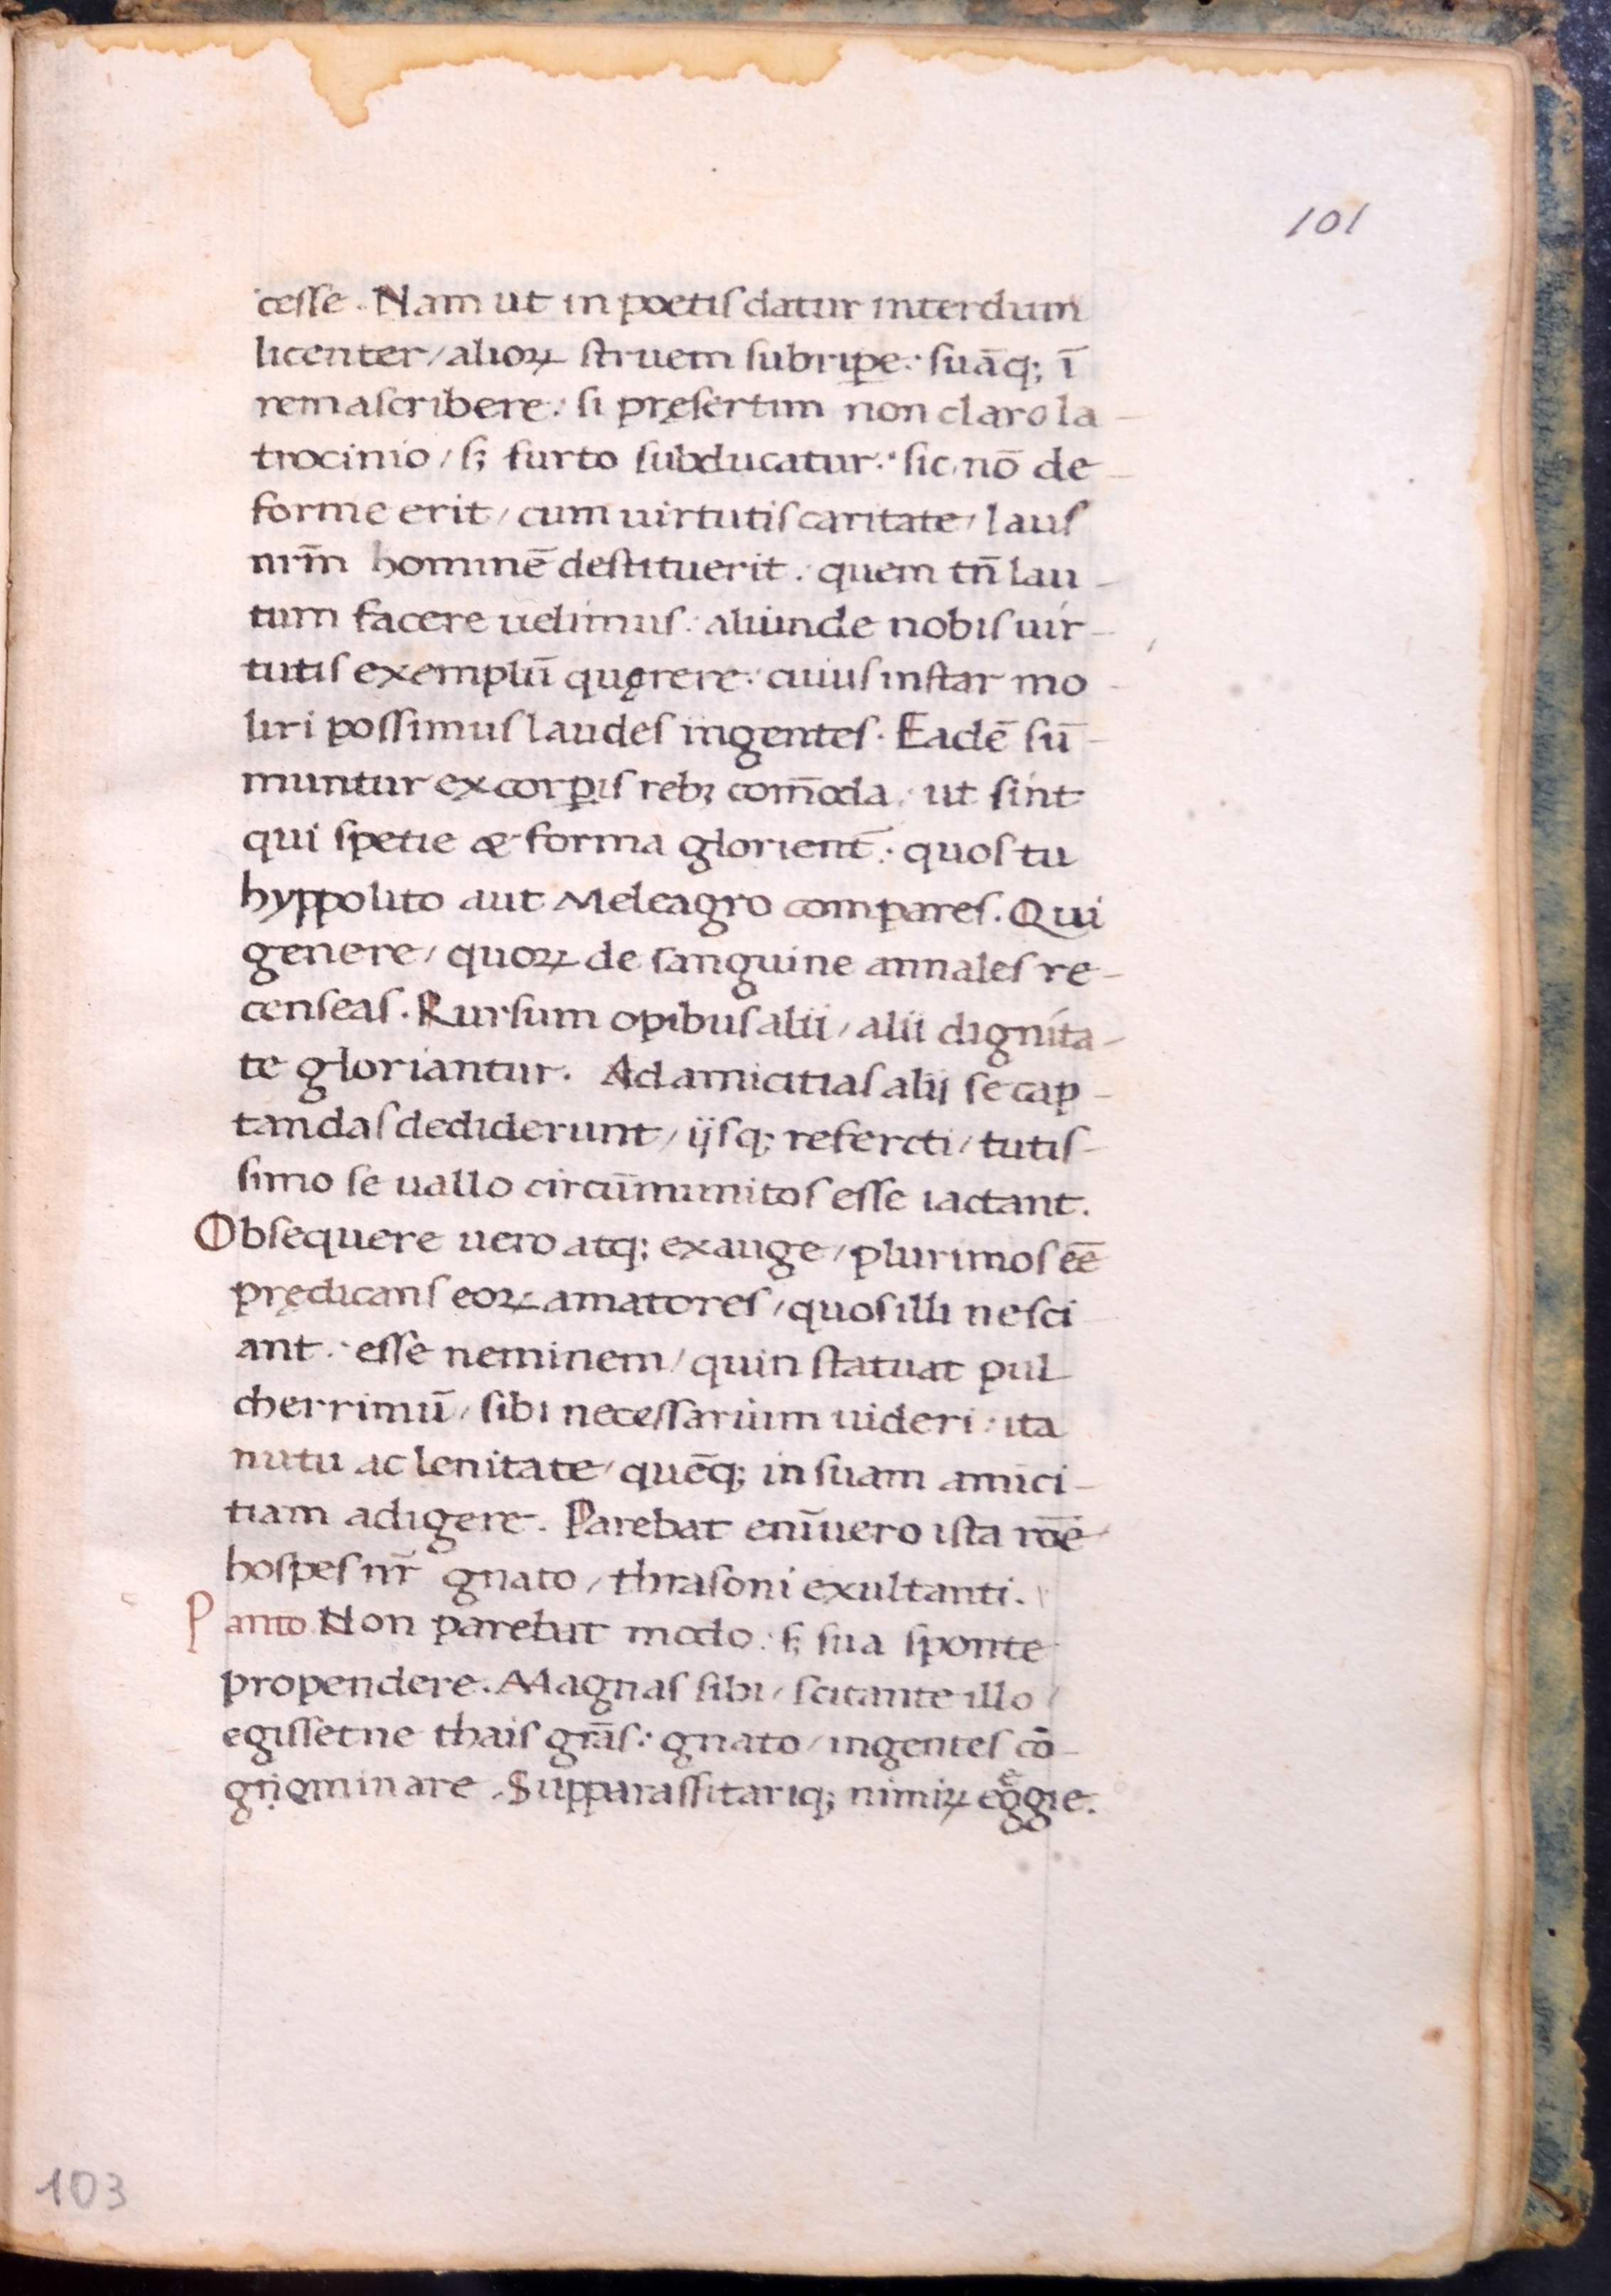 101
cesse. Nam ut in poetis datur interdum
licenter / alioꝝ struem subriꝑe: suāq; ī
rem ascribere: si pręsertim non claro la-
trocinio / s; furto subducatur: sic nō de-
forme erit / cum uirtutis caritate / laus
nr̄m hominē destituerit: quem tn̄ lau-
tum facere uelimus: aliunde nobis uir-
tutis exemplū quęrere: cuius instar mo-
liri possimus laudes ingentes. Eadē sū-
muntur ex corꝑis rebꝫ com̄oda: ut sint
qui spetie & forma glorient̄: quos tu
hyppolito aut Meleagro compares. Qui
genere / quoꝝ de sanguine annales re-
censeas. Rursum opibus alii / alii dignita-
te gloriantur. Ad amicitias alij se cap-
tandas dediderunt / ijsq; referti / tutis-
simo se uallo circūmunitos esse iactant.
Obsequere uero atq; exauge / plurimos eē
prędicans eoꝝ amatores / quos illi nesci
ant: esse neminem / quin statuat pul
cherrimū / sibi necessarium uideri: ita
nutu ac lenitate / quēq; in suam amici-
tiam adigere. Parebat enīuero ista rōe /
hospes nr̄ gnato / thrasoni exultanti.
Panto Non parebat modo: s; sua sponte
propendere. Magnas sibi / scitante illo /
egissetne thais grās: gnato / ingentes cō-
gnominare. Supparassitariq; nimiꝝ egͤgie.
103